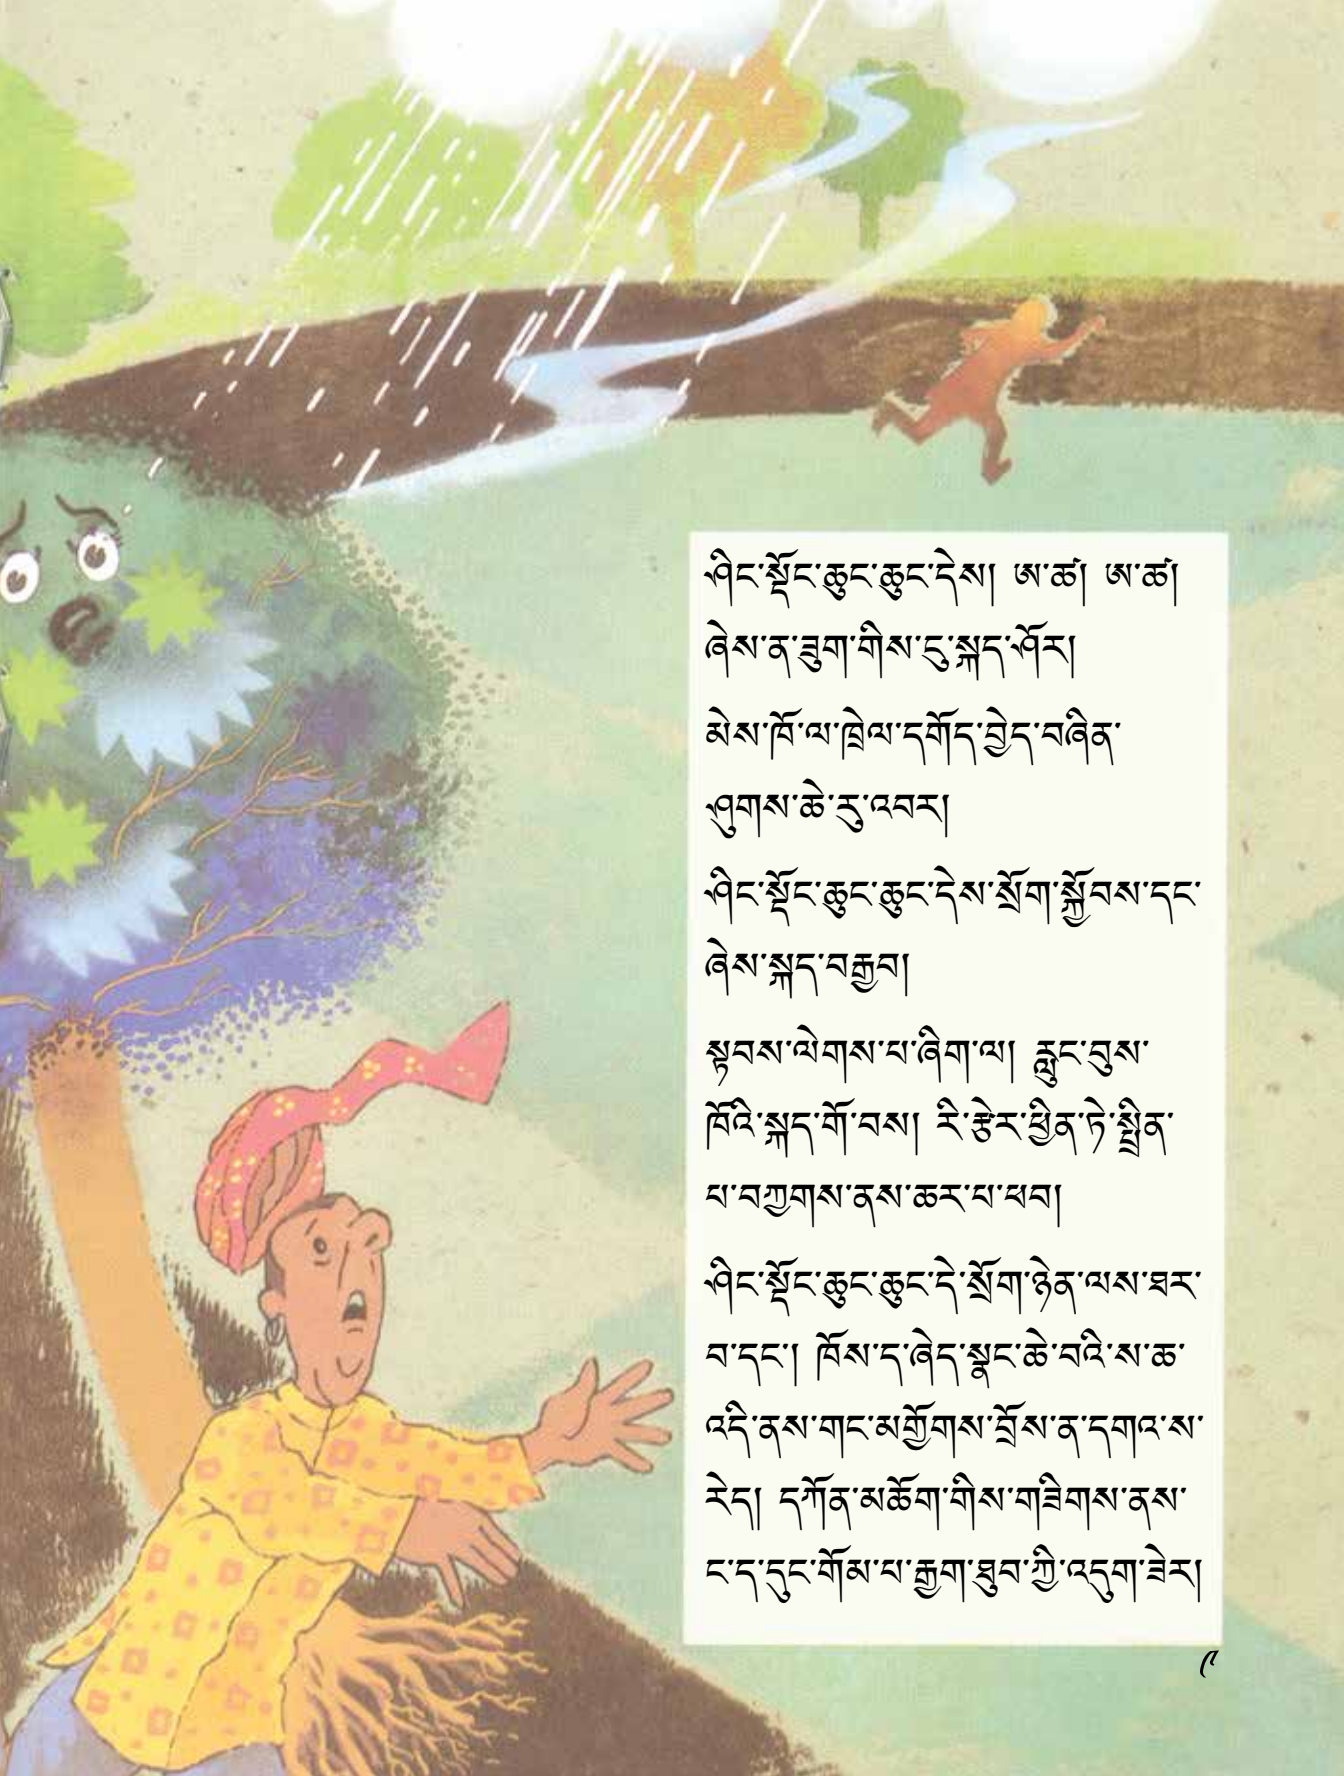 ཤིང་སྡོང་ཆུང་ཆུང་དེས། ཨ་ཚ། ཨ་ཚ།
ཞེས་ན་ཟུག་གིས་ངུ་སྐད་ཤོར།
མེས་ཁོ་ལ་ཁྲེལ་དགོད་བྱེད་བཞིན་
ཤུགས་ཆེ་རུ་འབར།
ཤིང་སྡོང་ཆུང་ཆུང་དེས་སྲོག་སྐྱོབས་དང་
ཞེས་སྐད་བརྒྱབ།
སྟབས་ལེགས་པ་ཞིག་ལ། རླུང་བུས་
ཁོའི་སྐད་གོ་བས། རི་རྩེར་ཕྱིན་ཏེ་སྤྲིན་
པ་བཀྱགས་ནས་ཆར་པ་ཕབ།
ཤིང་སྡོང་ཆུང་ཆུང་དེ་སྲོག་ཉེན་ལས་ཐར་
བ་དང་། ཁོས་ད་ཞེད་སྣང་ཆེ་བའི་ས་ཆ་
འདི་ནས་གང་མགྱོགས་བྲོས་ན་དགའ་ས་
རེད། དཀོན་མཆོག་གིས་གཟིགས་ནས་
ང་ད་དུང་གོམ་པ་རྒྱག་ཐུབ་ཀྱི་འདུག་ཟེར།
༩